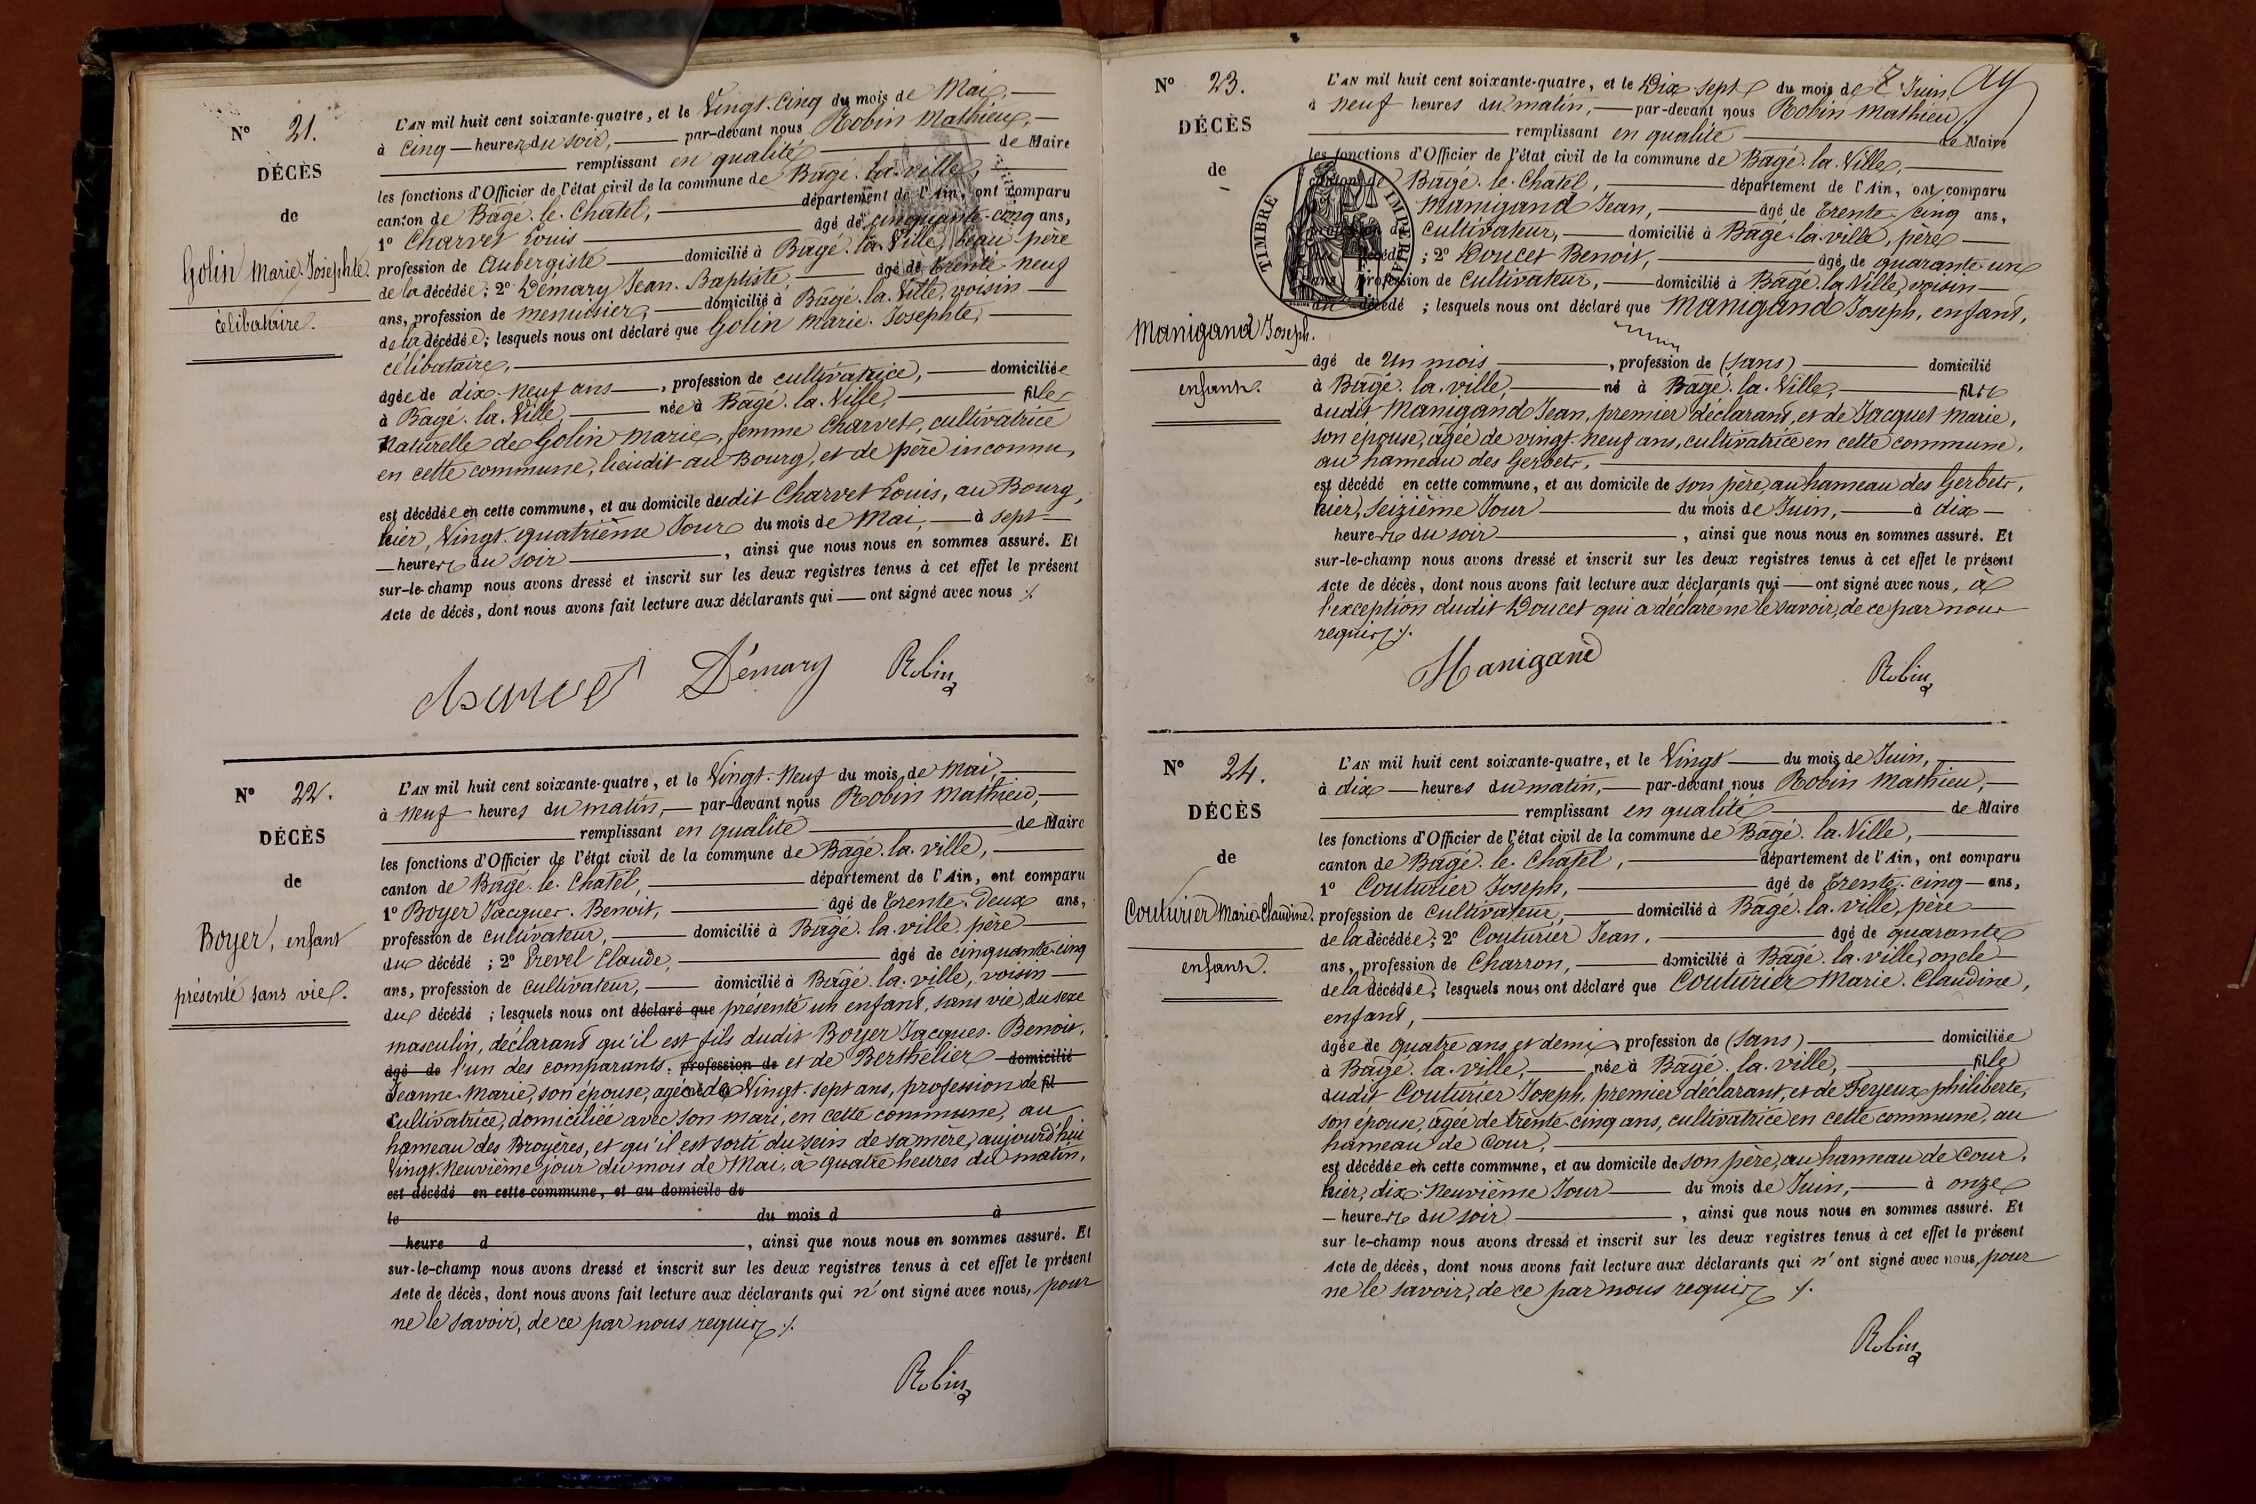 N° 21.
DÉCÈS
de
Golin Marie Josephte.
célibataire.
L'AN mil huit cent soixante-quatre, et le Vingt-Cinq du mois de Mai,
à cinq heures du soir, par-devant nous Robin Mathieu,
remplissant en qualité de Maire
les fonctions d'Officier de l'état civil de la commune de Bâgé-la-ville,
canton de Bâgé-le-Chatel, département de l'Ain, ont comparu
1° Charvet Louis âgé de cinquante-cinq ans,
profession de Aubergiste domicilié à Bâgé-la-Ville, beau-père
de la décédée; 2° Démary Jean-Baptiste, âgé de trente neuf
ans, profession de menuisier, domicilié à Bâgé-la-Ville, voisin
de la décédée; lesquels nous ont déclaré que Golin Marie-Josephte,
célibataire,
âgée de dix-neuf ans, profession de cultivatrice, domiciliée
à Bâgé-la-Ville, née à Bâgé-la-Ville, fille
Naturelle de Golin Marie, femme Charvet, cultivatrice
en cette commune, lieudit au Bourg, et de père inconnu,
est décédée en cette commune, et au domicile dudit Charvet Louis, au Bourg,
hier, Vingt-quatrième Jour du mois de Mai, à sept
heures du soir, ainsi que nous nous en sommes assuré. Et
sur-le-champ nous avons dressé et inscrit sur les deux registres tenus à cet effet le présent
Acte de décès, dont nous avons fait lecture aux déclarants qui ont signé avec nous ./.
Charvet Démary Robin
N° 22.
DÉCÈS
de
Boyer, enfant
présenté sans vie.
L'AN mil huit cent soixante-quatre, et le Vingt-Neuf du mois de Mai,
à neuf heures du matin, par-devant nous Robin Mathieu,
remplissant en qualité de Maire
les fonctions d'Officier de l'état civil de la commune de Bâgé-la-ville,
canton de Bâgé-le-Chatel, département de l'Ain, ont comparu
1° Boyer Jacques-Benoit, âgé de trente-Deux ans,
profession de cultivateur, domicilié à Bâgé-la-ville, père
du décédé ; 2° Prevel Claude, âgé de cinquante-cinq
ans, profession de cultivateur, domicilié à Bâgé-la-ville, voisin
du décédé ; lesquels nous ont déclaré que présenté un enfant, sans vie, du sexe
masculin, déclarant qu'il est fils dudit Boyer Jacques-Benoit,
âgé de l'un des comparants, profession de et de Berthelier domicilié
Jeanne-Marie, son épouse, agée de Vingt-sept ans, profession de fil
Cultivatrice, domiciliée avec son mari, en cette commune, au
hameau des Broyères, et qu'il est sorti du sein de sa mère, aujourd'hui
Vingt-Neuvième jour du mois de Mai, à quatre heures du matin,
est décédé en cette commune, et au domicile de
le du mois d à
heure d , ainsi que nous nous en sommes assuré. Et
sur-le-champ nous avons dressé et inscrit sur les deux registres tenus à cet effet le présent
Acte de décès, dont nous avons fait lecture aux déclarants qui n'ont signé avec nous, pour
ne le savoir, de ce par nous requis ./.
Robin
N° 23.
DÉCÈS
de
Manigand Joseph.
enfant.
L'AN mil huit cent soixante-quatre, et le Dix-sept du mois de Juin,
à neuf heures du matin, par-devant nous Robin Mathieu,
remplissant en qualité de Maire
les fonctions d'Officier de l'état civil de la commune de Bâgé-la-Ville,
canton de Bâgé-le-Chatel, département de l'Ain, ont comparu
Manigand Jean, âgé de trente-cinq ans,
profession de cultivateur, domicilié à Bâgé-la-ville, père
décédé ; 2° Doucet Benoit, âgé de quarante un
ans, profession de cultivateur, domicilié à Bâgé-la-Ville, voisin
du décédé ; lesquels nous ont déclaré que Manigand Joseph, enfant,
âgé de Un mois, profession de (sans) domicilié
à Bâgé-la-ville, né à Bâgé-la-Ville, fils
dudit Manigand Jean, premier déclarant, et de Jacquet Marie,
son épouse, âgée de vingt-neuf ans, cultivatrice en cette commune,
au hameau des Gerbets,
est décédé en cette commune, et au domicile de son père, au hameau des Gerbets,
hier, seizième Jour du mois de Juin, à dix
heures du soir, ainsi que nous nous en sommes assuré. Et
sur-le-champ nous avons dressé et inscrit sur les deux registres tenus à cet effet le présent
Acte de décès, dont nous avons fait lecture aux déclarants qui ont signé avec nous, à
l'exception dudit Doucet qui a déclaré ne le savoir, de ce par nous
requis ./.
Manigand Robin
TIMBRE IMPERIAL
N° 24.
DÉCÈS
de
Couturier Marie-Claudine.
enfant.
L'AN mil huit cent soixante-quatre, et le Vingt du mois de Juin,
à dix heures du matin, par-devant nous Robin Mathieu,
remplissant en qualité de Maire
les fonctions d'Officier de l'état civil de la commune de Bâgé-la-Ville,
canton de Bâgé-le-Chatel, département de l'Ain, ont comparu
1° Couturier Joseph, âgé de trente-cinq ans,
profession de Cultivateur, domicilié à Bâgé-la-ville, père
de la décédée; 2° Couturier Jean, âgé de quarante
ans, profession de Charron, domicilié à Bâgé-la-ville, oncle
de la décédée; lesquels nous ont déclaré que Couturier Marie-Claudine,
enfant,
âgée de quatre ans et demi, profession de (sans) domiciliée
à Bâgé-la-ville, née à Bâgé-la-ville, fille
dudit Couturier Joseph, premier déclarant, et de Feyeux philiberte,
son épouse, âgée de trente-cinq ans, cultivatrice en cette commune, au
hameau de Cour,
est décédée en cette commune, et au domicile de son père, au hameau de Cour,
hier, dix-Neuvième Jour du mois de Juin, à onze
heures du soir, ainsi que nous nous en sommes assuré. Et
sur le-champ nous avons dressé et inscrit sur les deux registres tenus à cet effet le présent
Acte de décès, dont nous avons fait lecture aux déclarants qui n'ont signé avec nous, pour
ne le savoir, de ce par nous requis ./.
Robin